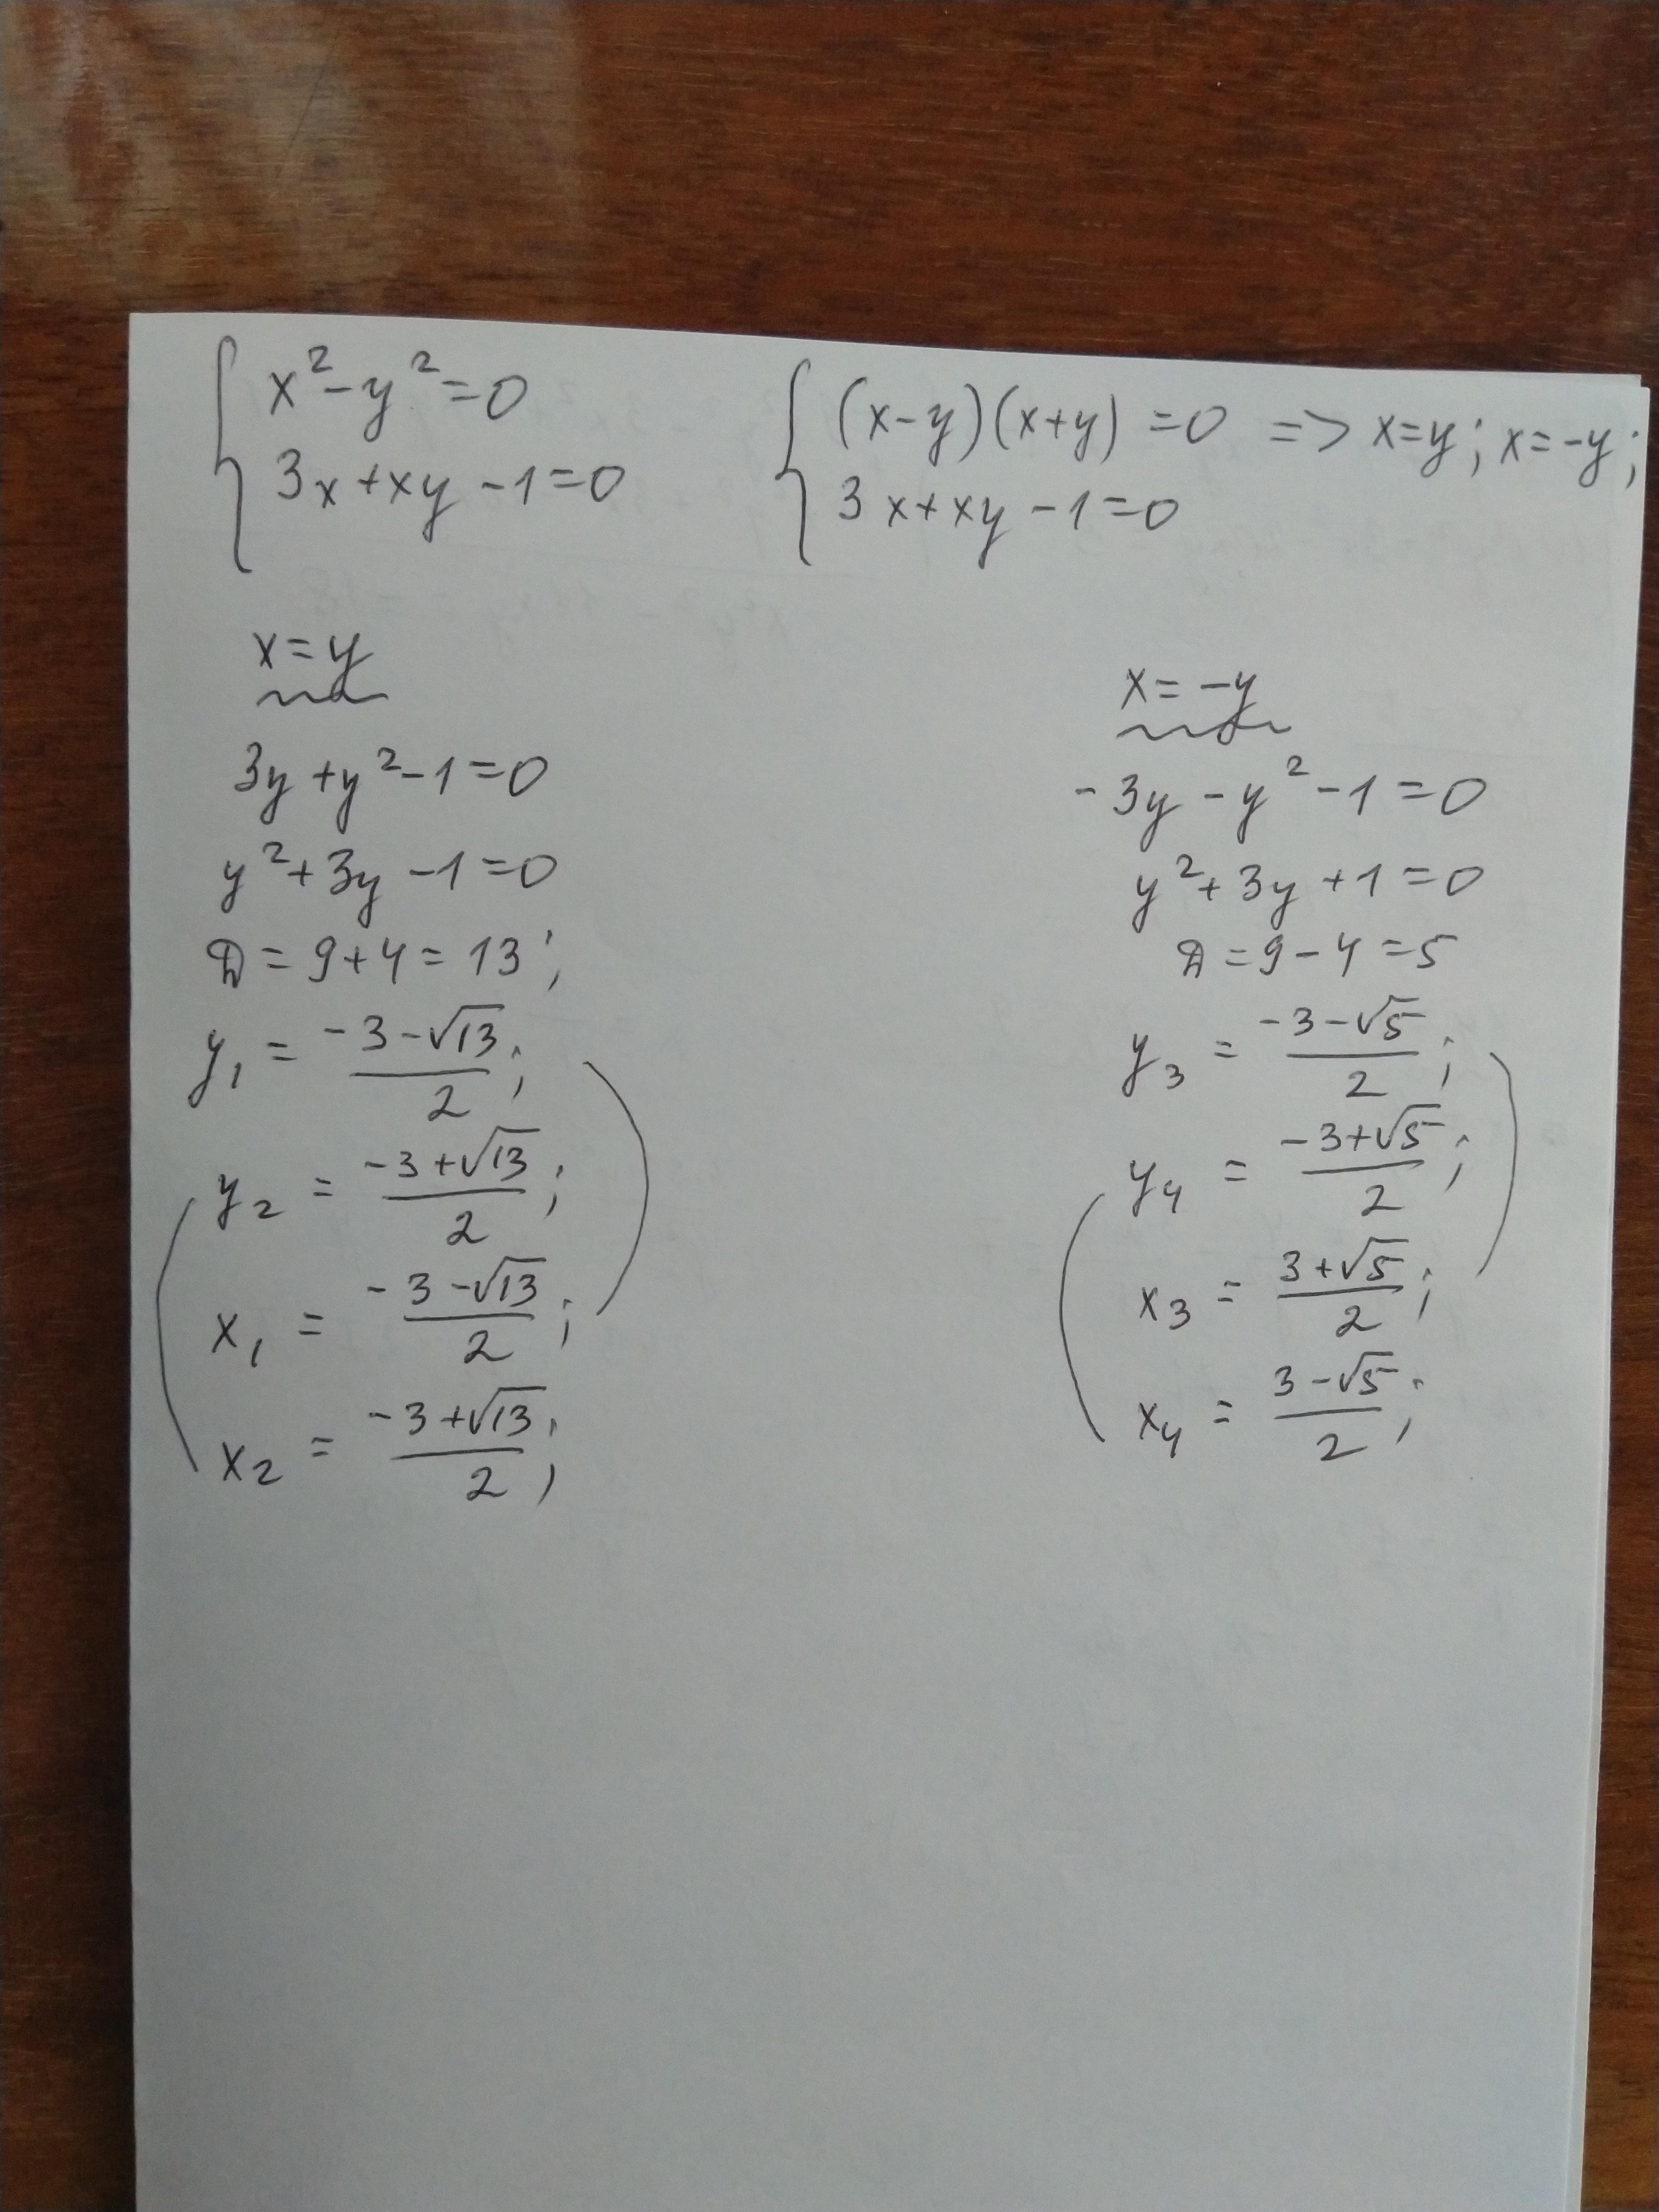 { x² - y² = 0
3x + xy - 1 = 0
{ (x-y)(x+y) = 0 => x = y; x = -y;
3x + xy - 1 = 0
x = y
3y + y² - 1 = 0
y² + 3y - 1 = 0
D = 9 + 4 = 13;
y₁ = (-3 - √13)/2;
y₂ = (-3 + √13)/2;
x₁ = (-3 - √13)/2;
x₂ = (-3 + √13)/2;
x = -y
-3y - y² - 1 = 0
y² + 3y + 1 = 0
D = 9 - 4 = 5
y₃ = (-3 - √5)/2;
y₄ = (-3 + √5)/2;
x₃ = (3 + √5)/2;
x₄ = (3 - √5)/2;